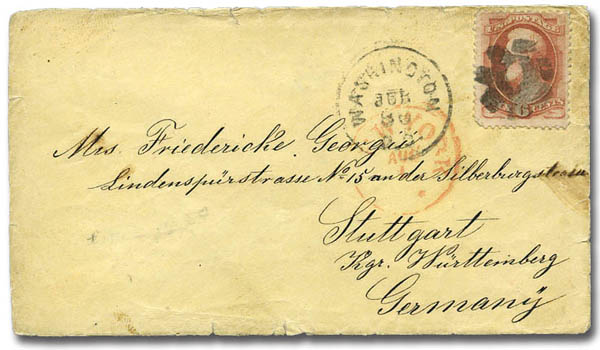 U.S. POSTAGE
SIX 6 CENTS
WASHINGTON
YORK
AUG
Mrs. Friedericke Georgii
Lindenspürstrasse No 15 an der Silberburgstrasse
Stuttgart
Kgr. Württemberg
Germany